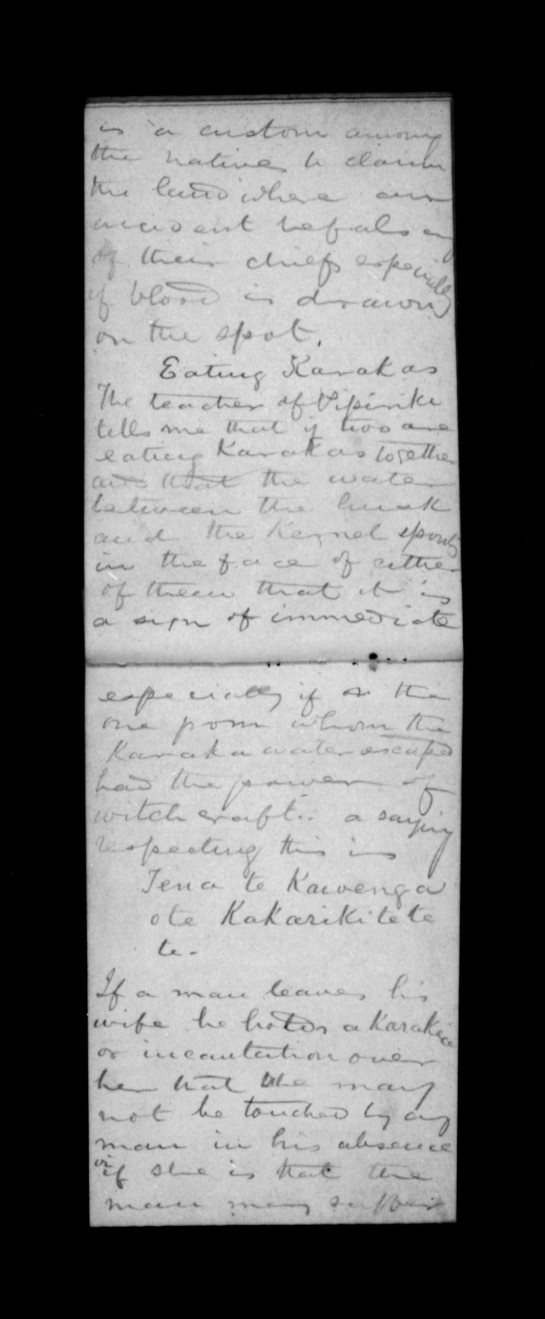 is a custom among
the natives to claim
the land where an
accident befals any
of their chiefs especially
if blood is drawn
on the spot.
Eating Karakas
The teacher of Pipiriki
tells me that if two are
eating Karakas together
and that the water
between the husk
and the Kernel spouts
in the face of either
of them that it is
a sign of immediate
especially if the
one from whom the
Karaka water escaped
had the power of
witchcraft. a saying
respecting this is
Tena te Kawenga
ote Kakarikitete
te.
If a man leaves his
wife he holds a Karakia
or incantation over
her that she may
not be touched by any
man in his absence
or if she is that the
man may suffer